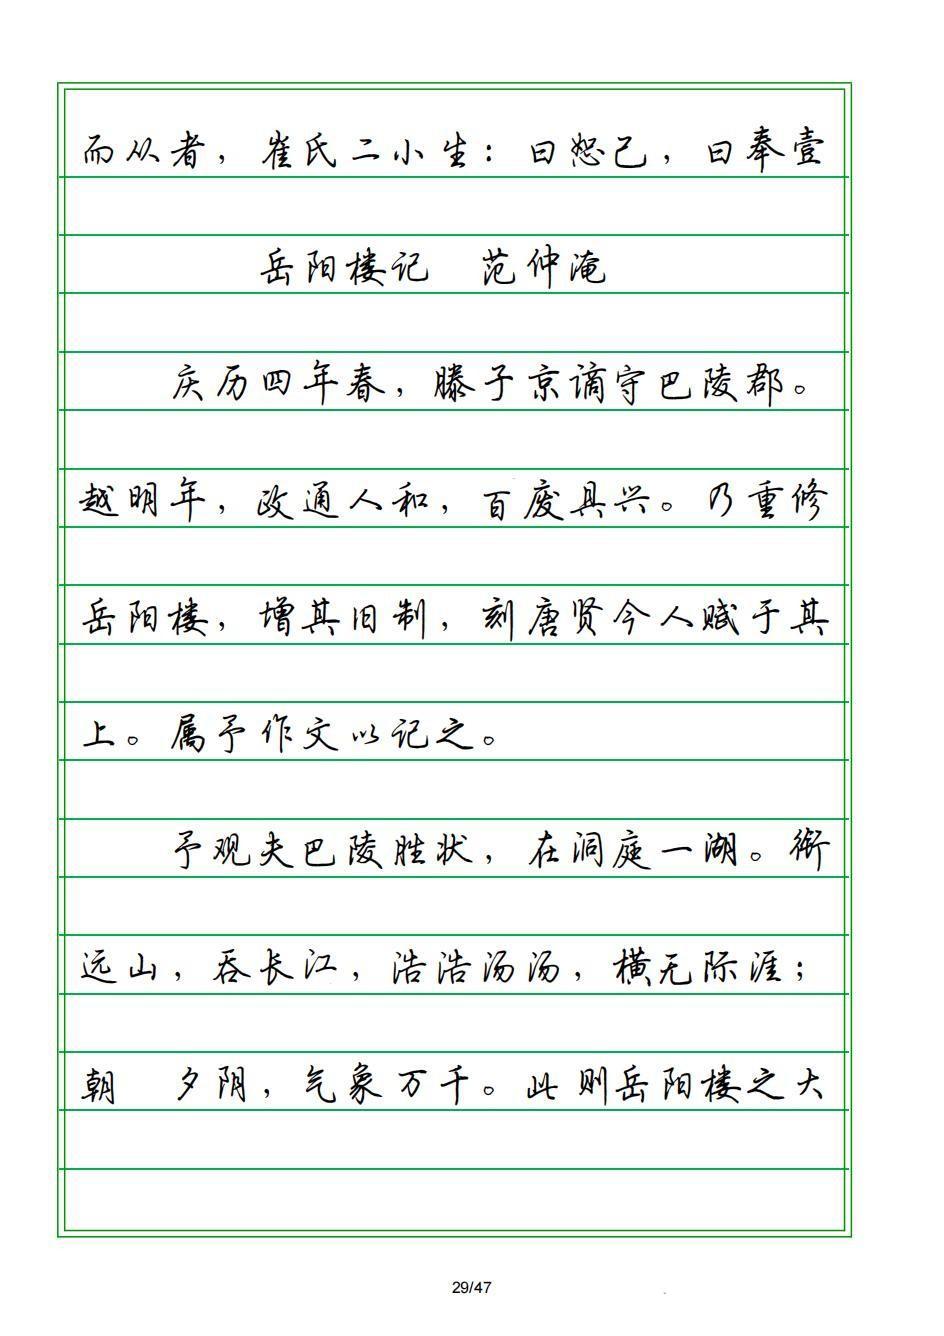 而从者，崔氏二小生：曰恕己，曰奉壹
岳阳楼记　范仲淹
庆历四年春，滕子京谪守巴陵郡。
越明年，政通人和，百废具兴。乃重修
岳阳楼，增其旧制，刻唐贤今人赋于其
上。属予作文以记之。
予观夫巴陵胜状，在洞庭一湖。衔
远山，吞长江，浩浩汤汤，横无际涯；
朝　夕阴，气象万千。此则岳阳楼之大
29/47